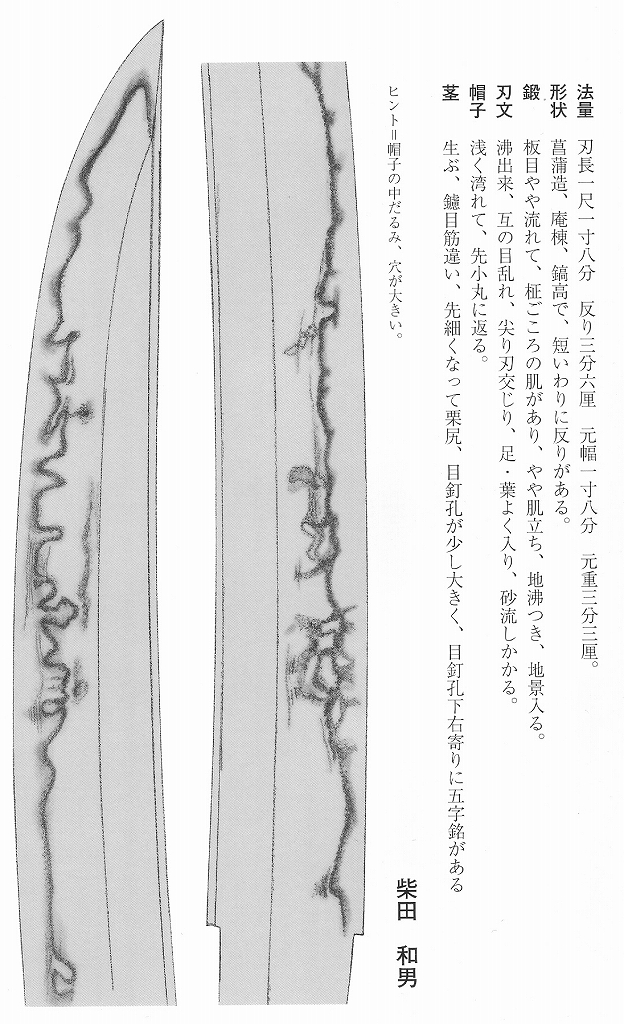 法量　刃長一尺一寸八分　反り三分六厘　元幅一寸八分　元重三分三厘。
形状　菖蒲造、庵棟、鎬高で、短いわりに反りがある。
鍛　板目やや流れて、柾ごころの肌があり、やや肌立ち、地沸つき、地景入る。
刃文　沸出来、互の目乱れ、尖り刃交じり、足・葉よく入り、砂流しかかる。
帽子　浅く湾れて、先小丸に返る。
茎　生ぶ、鑢目筋違い、先細くなって栗尻、目釘孔が少し大きく、目釘孔下右寄りに五字銘がある
ヒント＝帽子の中だるみ、穴が大きい。
柴田　和男